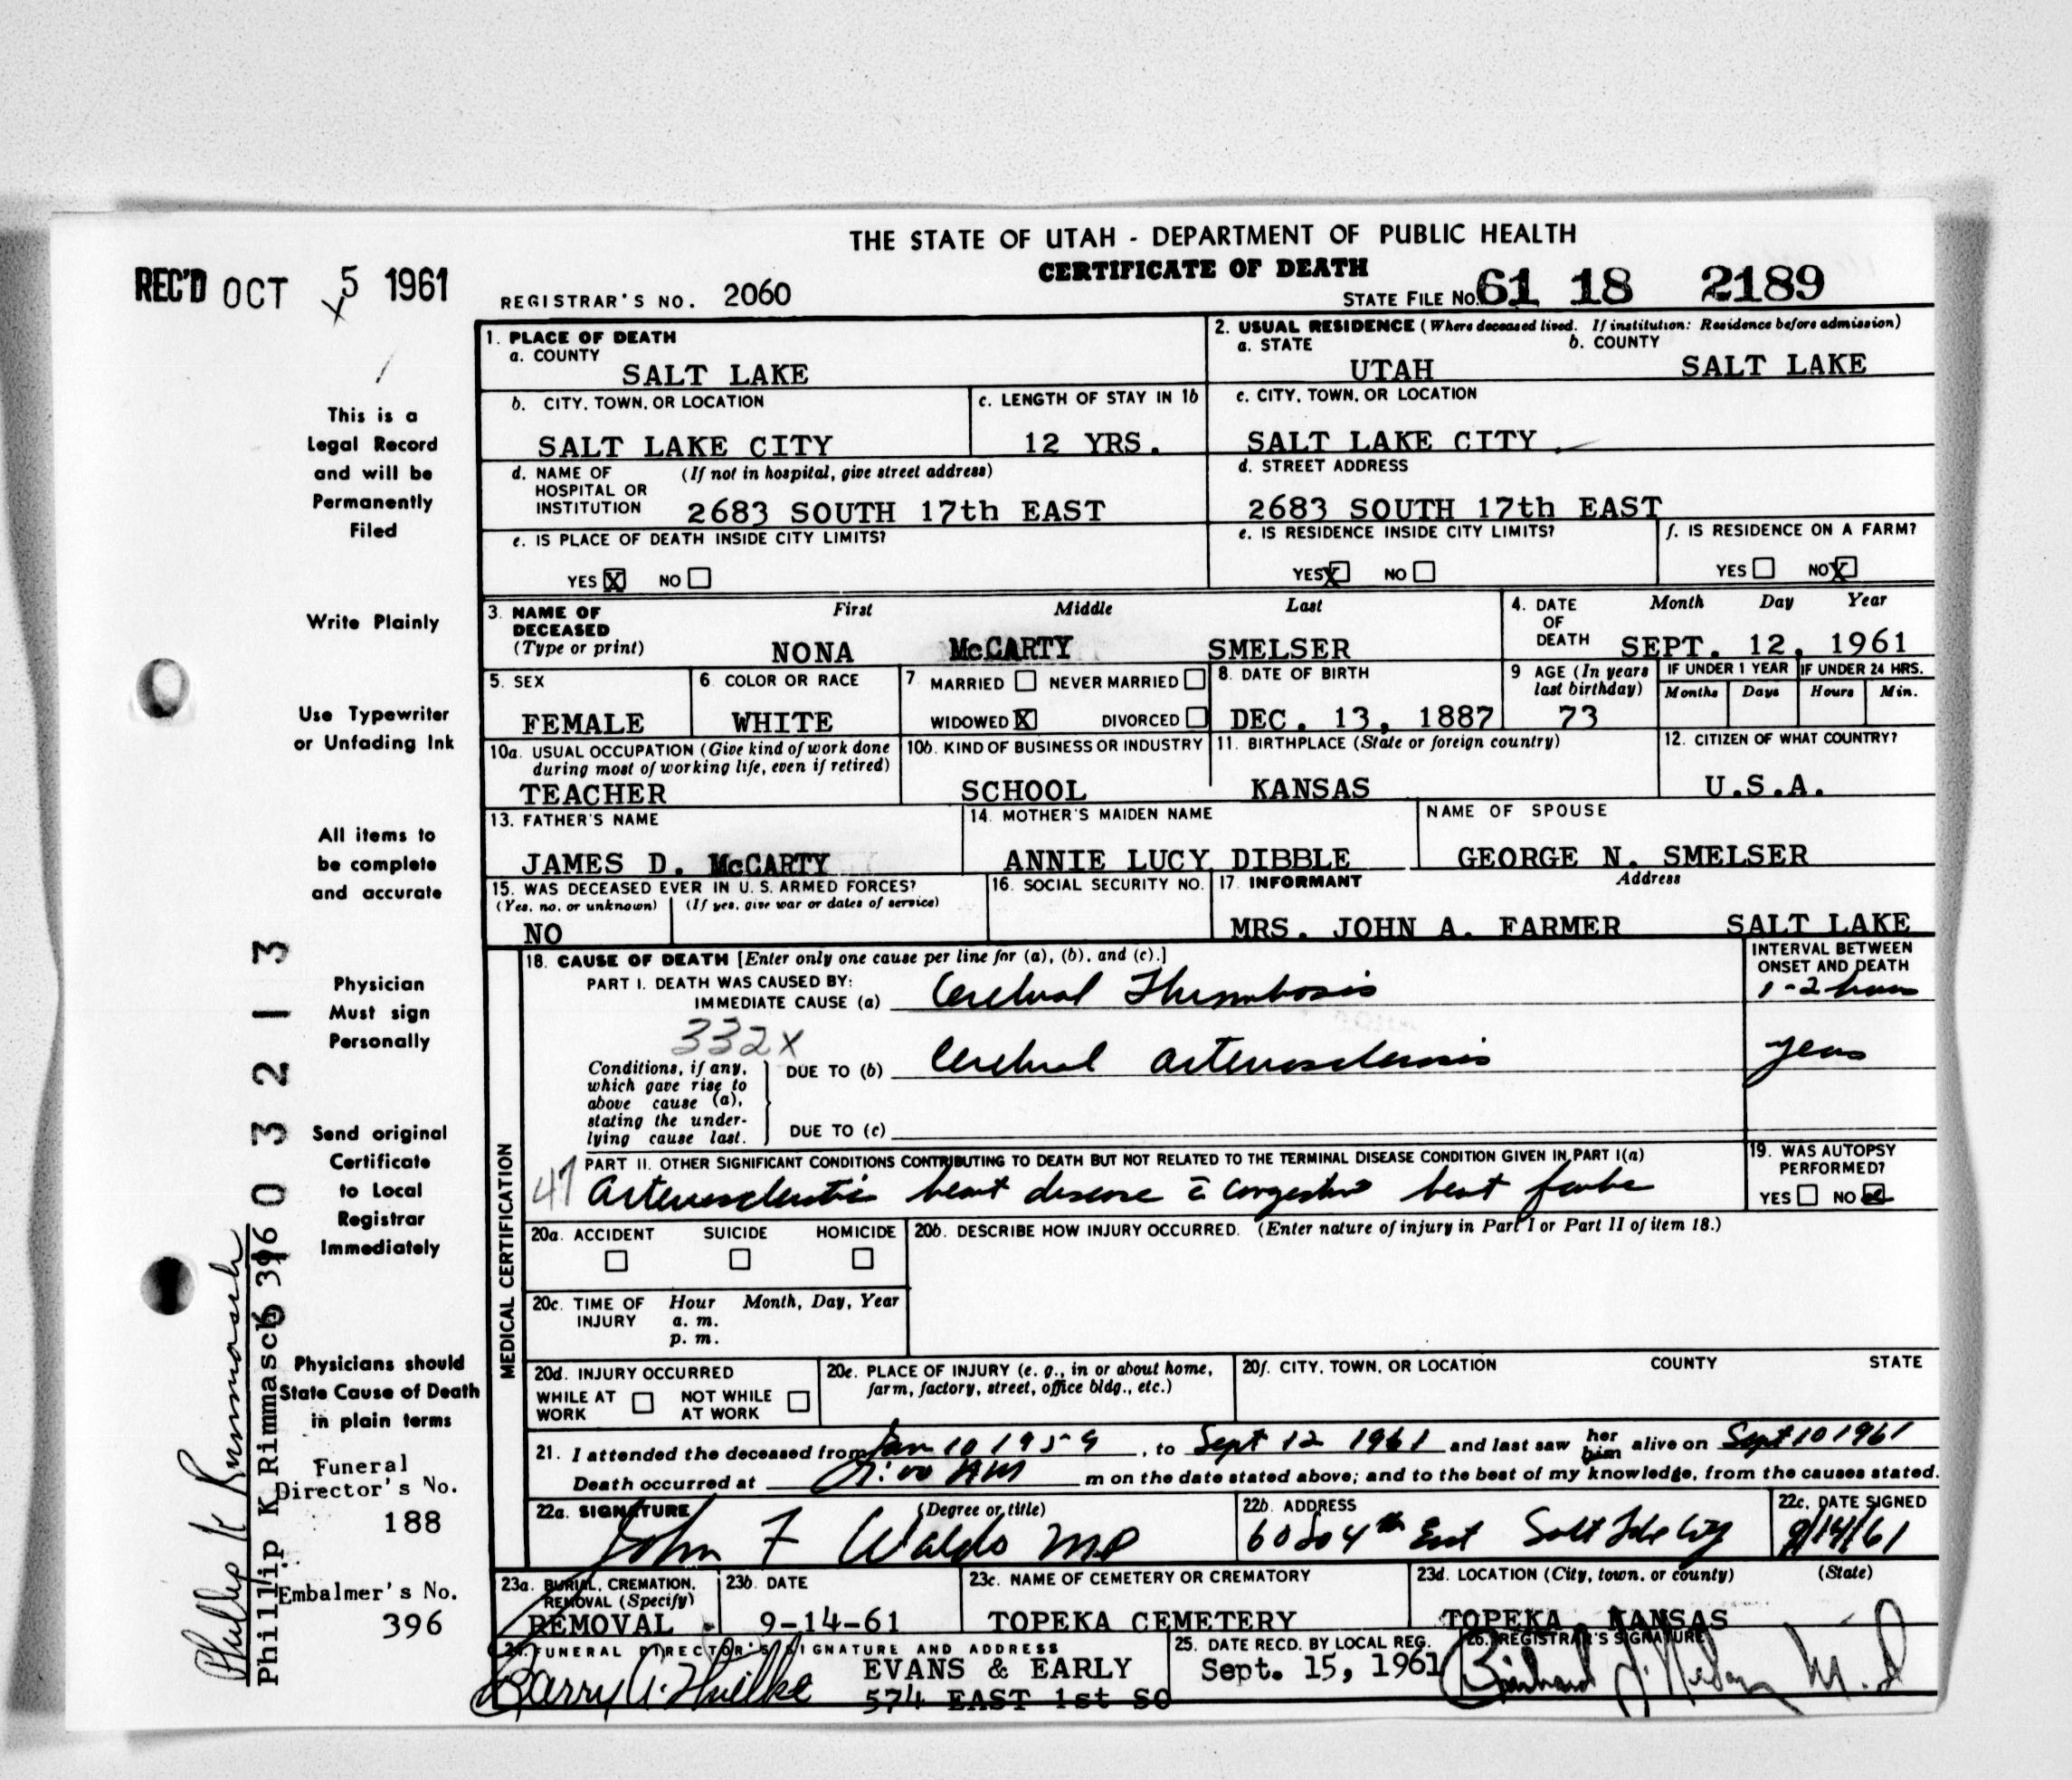 THE STATE OF UTAH - DEPARTMENT OF PUBLIC HEALTH
CERTIFICATE OF DEATH
REC'D OCT 5 1961
REGISTRAR'S NO. 2060
STATE FILE NO. 61 18 2189
1. PLACE OF DEATH
a. COUNTY
SALT LAKE
2. USUAL RESIDENCE (Where deceased lived. If institution: Residence before admission)
a. STATE b. COUNTY
UTAH SALT LAKE
b. CITY, TOWN, OR LOCATION
SALT LAKE CITY
c. LENGTH OF STAY IN 1b
12 YRS.
c. CITY, TOWN, OR LOCATION
SALT LAKE CITY
d. NAME OF (If not in hospital, give street address)
HOSPITAL OR
INSTITUTION 2683 SOUTH 17th EAST
d. STREET ADDRESS
2683 SOUTH 17th EAST
e. IS PLACE OF DEATH INSIDE CITY LIMITS?
YES X NO
e. IS RESIDENCE INSIDE CITY LIMITS?
YES X NO
f. IS RESIDENCE ON A FARM?
YES NO X
3. NAME OF First Middle Last
DECEASED
(Type or print) NONA McCARTY SMELSER
4. DATE Month Day Year
OF
DEATH SEPT. 12, 1961
5. SEX
FEMALE
6. COLOR OR RACE
WHITE
7. MARRIED NEVER MARRIED
WIDOWED X DIVORCED
8. DATE OF BIRTH
DEC. 13, 1887
9 AGE (In years
last birthday)
73
IF UNDER 1 YEAR IF UNDER 24 HRS.
Months Days Hours Min.
10a. USUAL OCCUPATION (Give kind of work done
during most of working life, even if retired)
TEACHER
10b. KIND OF BUSINESS OR INDUSTRY
SCHOOL
11. BIRTHPLACE (State or foreign country)
KANSAS
12. CITIZEN OF WHAT COUNTRY?
U.S.A.
13. FATHER'S NAME
JAMES D. McCARTY
14. MOTHER'S MAIDEN NAME
ANNIE LUCY DIBBLE
NAME OF SPOUSE
GEORGE N. SMELSER
15. WAS DECEASED EVER IN U. S. ARMED FORCES?
(Yes, no, or unknown) (If yes, give war or dates of service)
NO
16. SOCIAL SECURITY NO.
17. INFORMANT Address
MRS. JOHN A. FARMER SALT LAKE
MEDICAL CERTIFICATION
18. CAUSE OF DEATH [Enter only one cause per line for (a), (b), and (c).]
INTERVAL BETWEEN
ONSET AND DEATH
PART I. DEATH WAS CAUSED BY:
IMMEDIATE CAUSE (a) Cerebral Thrombosis 1-2 hours
332X
Conditions, if any,
which gave rise to
above cause (a),
stating the under-
lying cause last.
DUE TO (b) Cerebral arteriosclerosis years
DUE TO (c)
PART II. OTHER SIGNIFICANT CONDITIONS CONTRIBUTING TO DEATH BUT NOT RELATED TO THE TERMINAL DISEASE CONDITION GIVEN IN PART I(a)
Arteriosclerotic heart disease c̄ congestive heart failure
19. WAS AUTOPSY
PERFORMED?
YES NO
20a. ACCIDENT SUICIDE HOMICIDE
20b. DESCRIBE HOW INJURY OCCURRED. (Enter nature of injury in Part I or Part II of item 18.)
20c. TIME OF Hour Month, Day, Year
INJURY a. m.
p. m.
20d. INJURY OCCURRED
WHILE AT NOT WHILE
WORK AT WORK
20e. PLACE OF INJURY (e. g., in or about home,
farm, factory, street, office bldg., etc.)
20f. CITY, TOWN, OR LOCATION COUNTY STATE
21. I attended the deceased from Jan 10 1959, to Sept 12 1961 and last saw her him alive on Sept 10 1961
Death occurred at m on the date stated above; and to the best of my knowledge, from the causes stated.
22a. SIGNATURE (Degree or title)
John F Waldo MD
22b. ADDRESS
4th East Salt Lake City
22c. DATE SIGNED
9/14/61
23a. BURIAL, CREMATION,
REMOVAL (Specify)
REMOVAL
23b. DATE
9-14-61
23c. NAME OF CEMETERY OR CREMATORY
TOPEKA CEMETERY
23d. LOCATION (City, town, or county) (State)
TOPEKA KANSAS
24. FUNERAL DIRECTOR'S SIGNATURE AND ADDRESS
EVANS & EARLY
574 EAST 1st SO
25. DATE RECD. BY LOCAL REG.
Sept. 15, 1961
26. REGISTRAR'S SIGNATURE
M.D
This is a
Legal Record
and will be
Permanently
Filed
Write Plainly
Use Typewriter
or Unfading Ink
All items to
be complete
and accurate
Physician
Must sign
Personally
Send original
Certificate
to Local
Registrar
Immediately
Physicians should
State Cause of Death
in plain terms
Funeral
Director's No.
188
Embalmer's No.
396
Phillip K Rimmasch
Phillip K Rimmasch 396
0 3 2 1 3